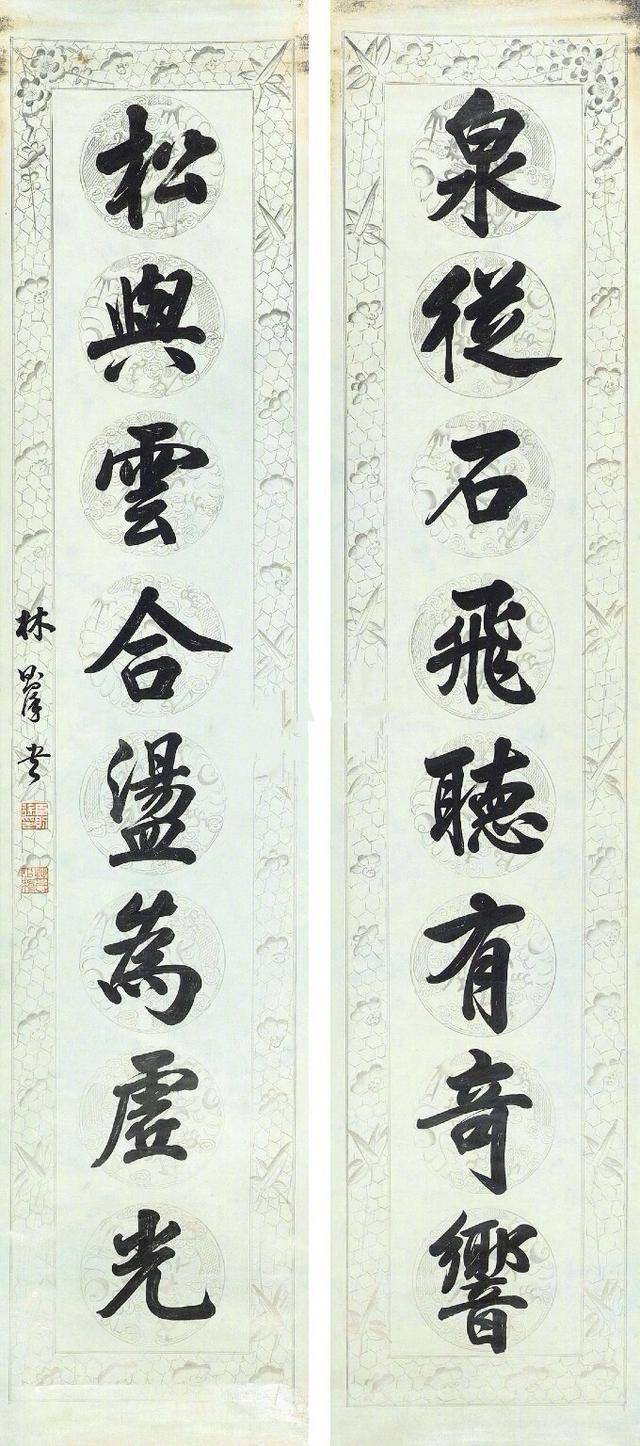 泉從石飛聽有奇響
松與雲合盪為虛光
林則徐書